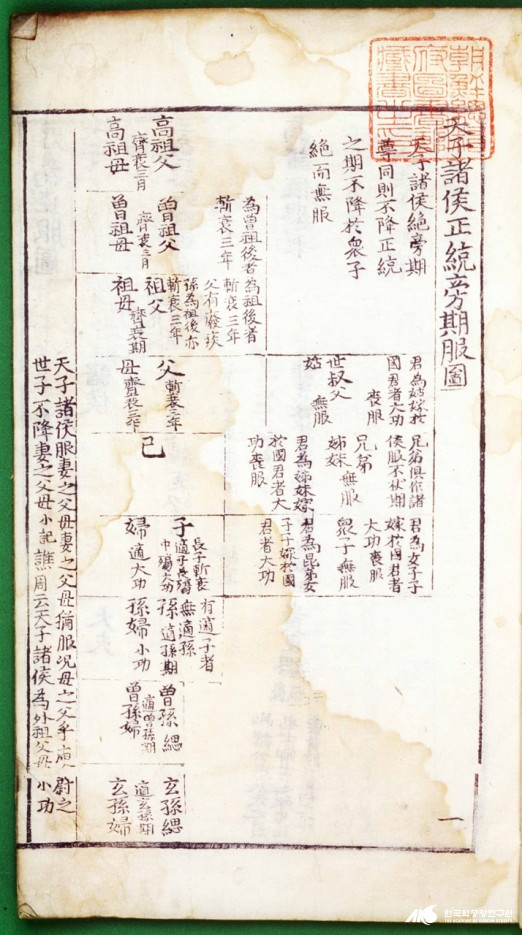 朝鮮總督
府圖書館
藏書之印
天子諸侯正統旁期服圖
天子諸侯絶旁期
尊同則不降正統
之期不降於衆子
絶而無服
高祖父
齊衰三月
高祖母
為曾祖後者
斬衰三年
曾祖父
齊衰三月
曾祖母
為祖後者
斬衰三年
父有廢疾
孫為祖後亦
斬衰三年
祖父
齊衰期
祖母
君為姑嫁於
國君者大功
喪服
世叔父
無服
姑
父
斬衰三年
母
齊衰三年
兄弟俱作諸
侯服不杖期
兄弟
無服
姊妹
君為姊妹嫁
於國君者大
功喪服
己
君為女子子
嫁於國君者
大功喪服
衆子無服
君為昆弟女
子子嫁於國
君者大功
子
長子斬衰
適子長殤
中殤大功
婦
適大功
有適子者
無適孫
孫
適孫期
孫婦
小功
曾孫緦
適曾孫期
曾孫婦
玄孫緦
適玄孫期
玄孫婦
天子諸侯服妻之父母妻之父母猶服况母之父乎
尉之
世子不降妻之父母小記譙周云天子諸侯為外祖父母小功
一
한국학중앙연구원